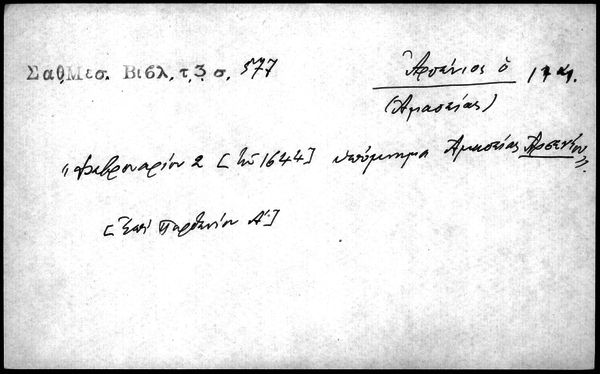 Σαθ. Μεσ. Βιβλ, τ, 3 σ, 577
Ἀρσένιος ὁ
(Ἀμασείας)
"Φεβρουαρίου 2 [τοῦ 1644] ὑπόμνημα Ἀμασείας Ἀρσενίου".
[Ἐπὶ Παρθενίου Α΄]